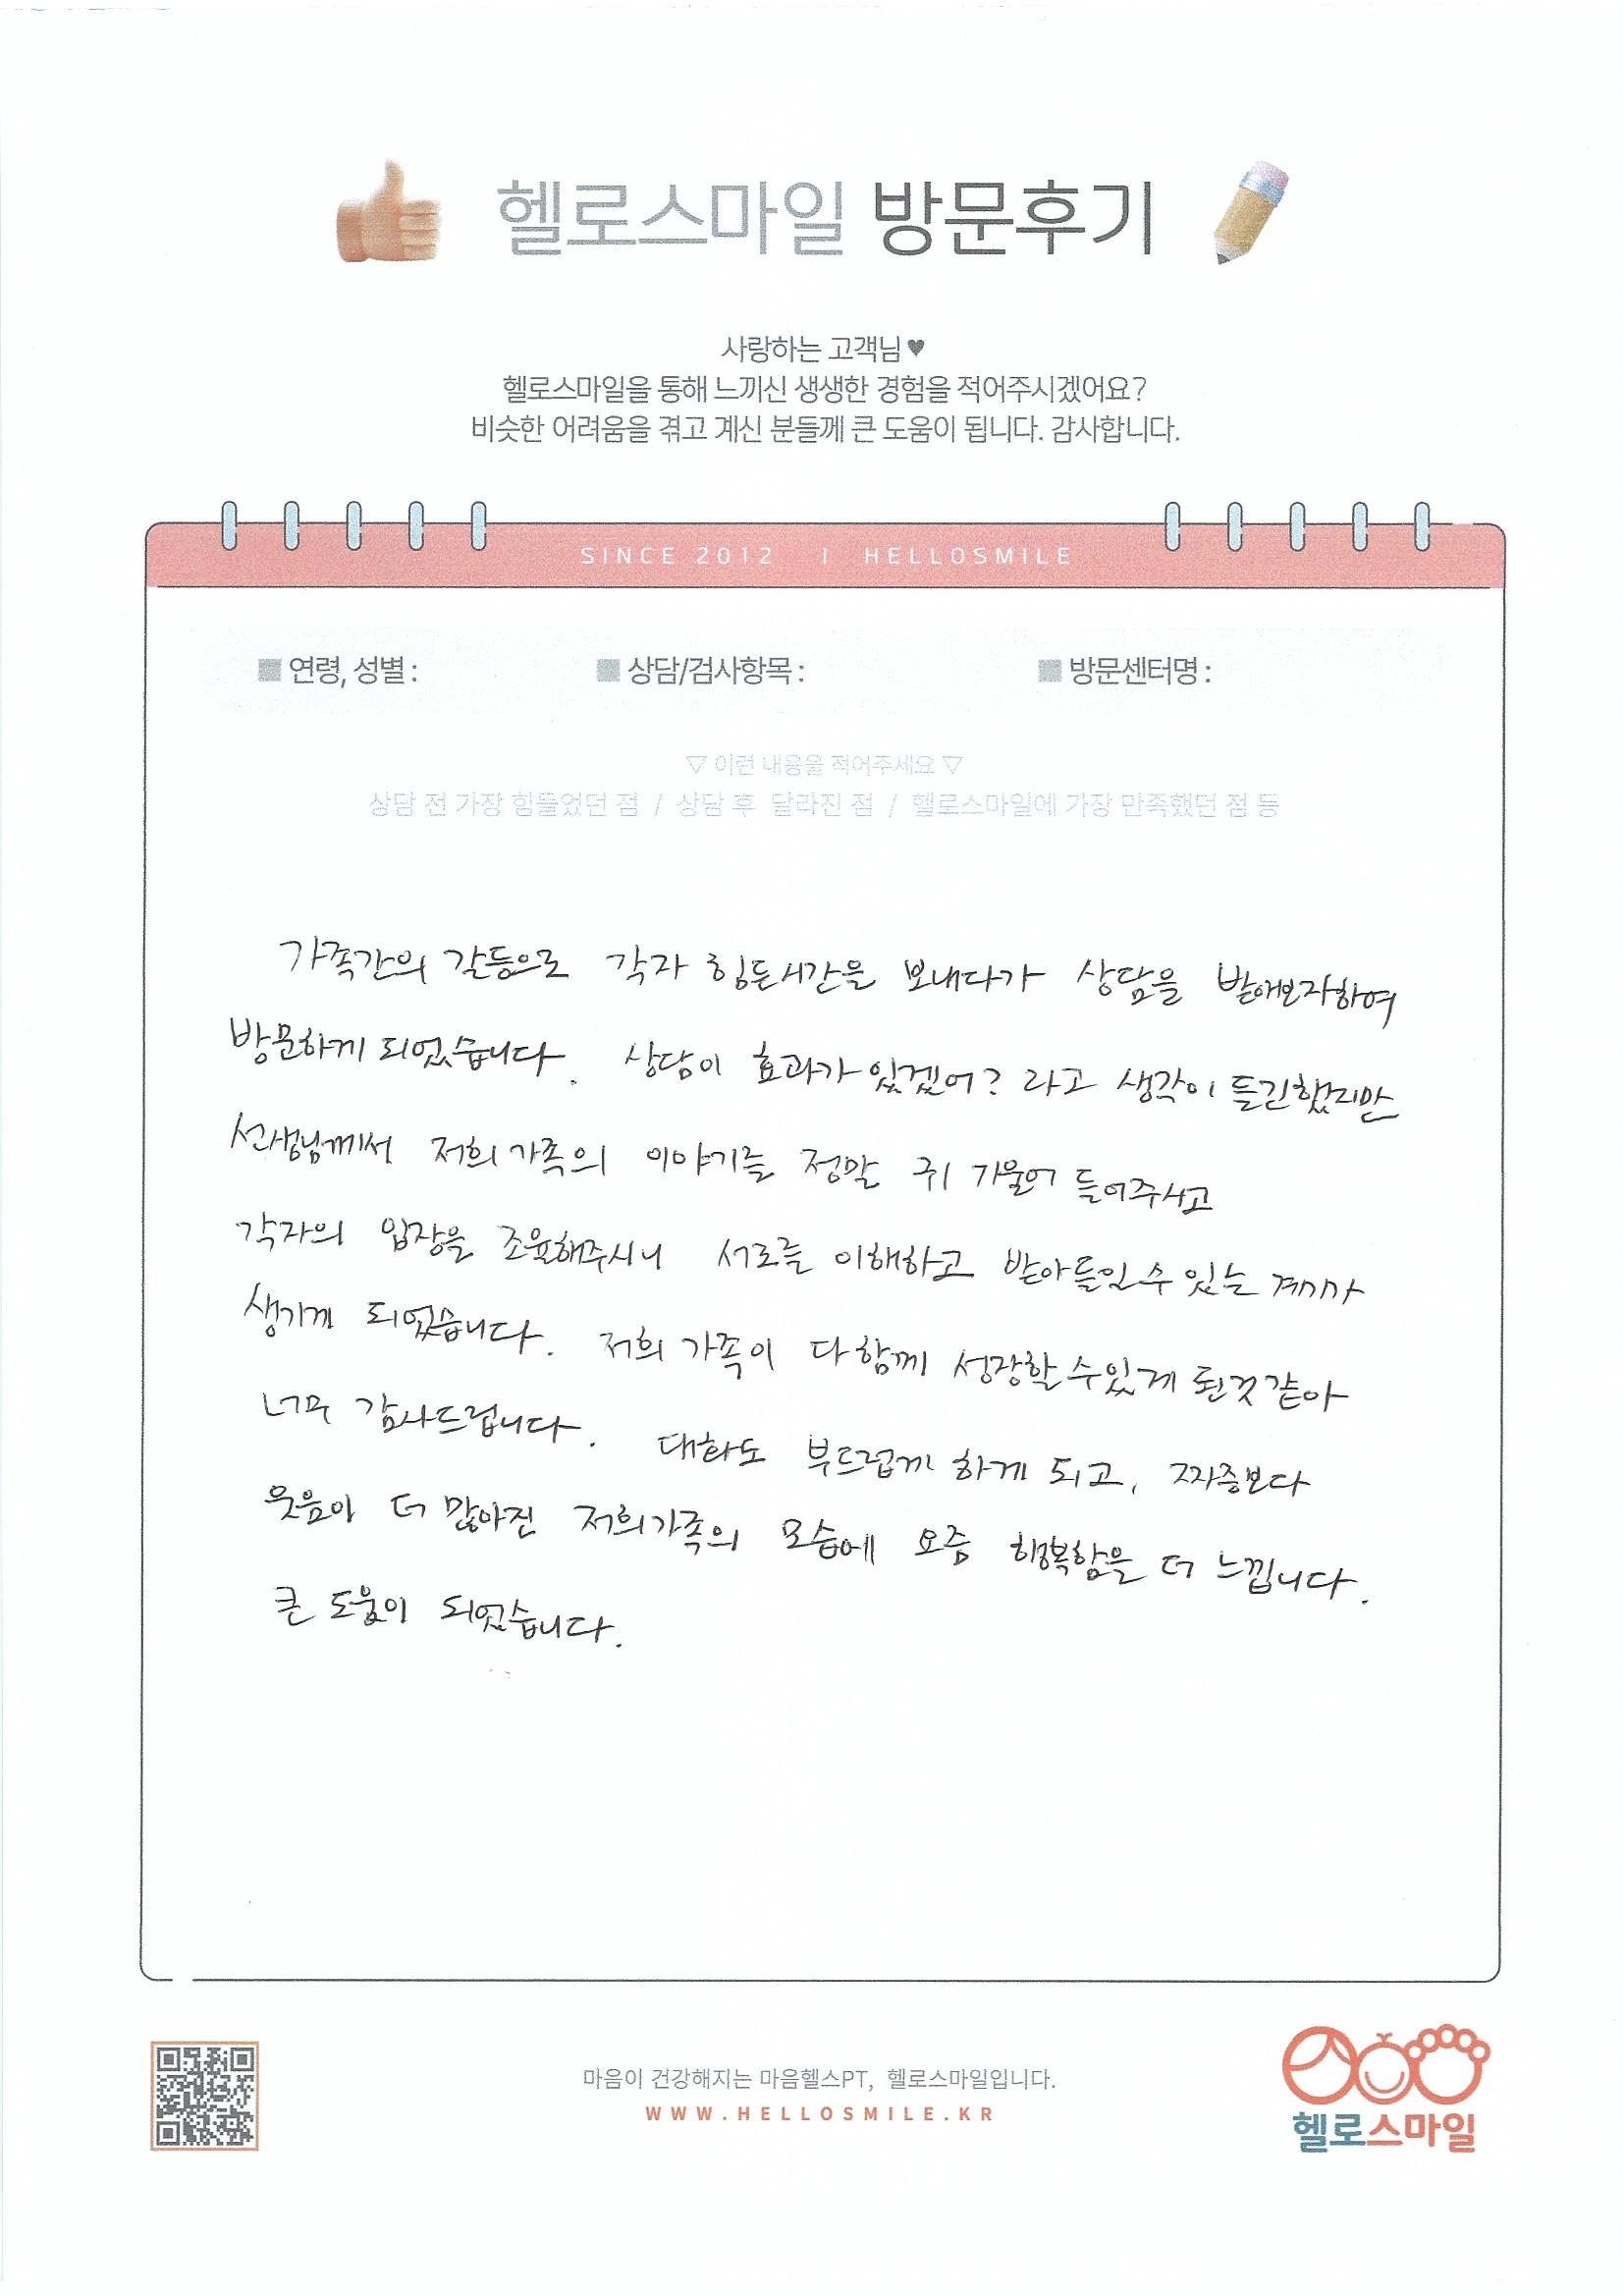 헬로스마일 방문후기
사랑하는 고객님♥
헬로스마일을 통해 느끼신 생생한 경험을 적어주시겠어요?
비슷한 어려움을 겪고 계신 분들께 큰 도움이 됩니다. 감사합니다.
SINCE 2012 | HELLOSMILE
■ 연령, 성별 : ■ 상담/검사항목 : ■ 방문센터명 :
▽ 이런 내용을 적어주세요 ▽
상담 전 가장 힘들었던 점 / 상담 후 달라진 점 / 헬로스마일에 가장 만족했던 점 등
가족간의 갈등으로 각자 힘든시간을 보내다가 상담을 받아보자하여
방문하게 되었습니다. 상담이 효과가 있겠어? 라고 생각이 들긴했지만
선생님께서 저희 가족의 이야기를 정말 귀 기울여 들어주시고
각자의 입장을 조율해주시니 서로를 이해하고 받아들일 수 있는 계기가
생기게 되었습니다. 저희 가족이 다 함께 성장할 수 있게 된것 같아
너무 감사드립니다. 대화도 부드럽게 하게 되고, 짜증보다
웃음이 더 많아진 저희가족의 모습에 요즘 행복함을 더 느낍니다.
큰 도움이 되었습니다.
마음이 건강해지는 마음헬스PT, 헬로스마일입니다.
WWW.HELLOSMILE.KR
헬로스마일